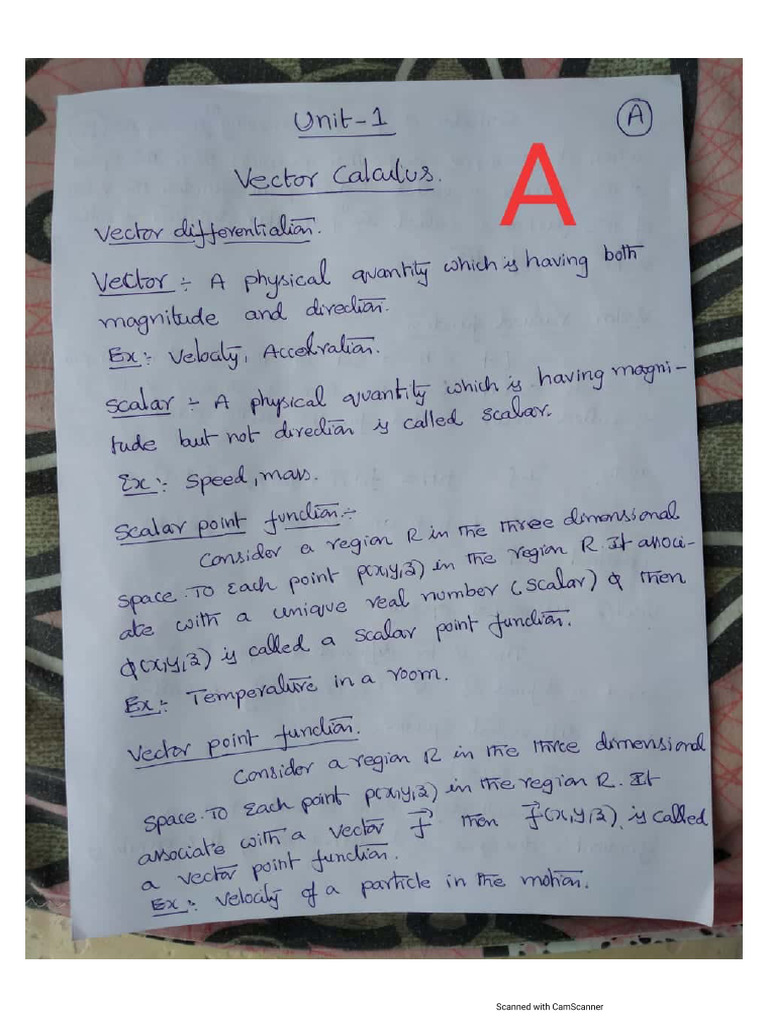 Unit-1
A
Vector Calculus.
A
Vector differentiation.
Vector :- A physical quantity which is having both
magnitude and direction.
Ex:- Velocity, Acceleration.
Scalar :- A physical quantity which is having magni-
tude but not direction is called scalar.
Ex:- Speed, mass.
Scalar point function:-
Consider a region R in the three dimensional
space. To each point p(x,y,z) in the region R. It associ-
ate with a unique real number (scalar) ϕ then
ϕ(x,y,z) is called a scalar point function.
Ex:- Temperature in a room.
Vector point function.
Consider a region R in the three dimensional
space. To Each point p(x,y,z) in the region R. It
associate with a vector f⃗ then f⃗(x,y,z) is called
a vector point function.
Ex:- Velocity of a particle in the motion.
Scanned with CamScanner